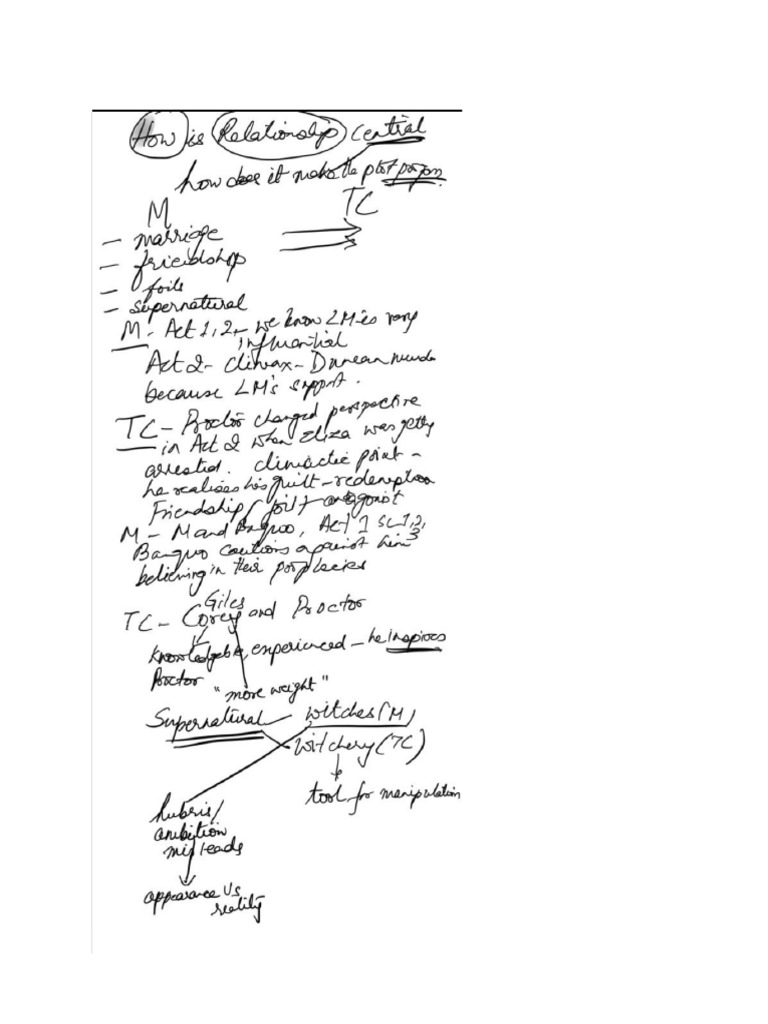 How is Relationship central
how does it make the plot
M TC
- marriage
- friendship
- foils
- supernatural
M - Act 1, 2, - we know LM is very
influential
Act 2 - climax - Duncan
because LM's support.
TC - Proctor changed perspective
in Act 2 when Eliza was getting
arrested. climactic point -
he realises his guilt - redemption
Friendship / foil + antagonist
M - M and Banquo, Act 1 sc 1, 2, 3
Banquo cautions against him
believing in their
Giles
TC - Corey and Proctor
Knowledgeable, experienced - he inspires
Proctor
"more weight"
Supernatural witches (M)
witchery (TC)
tool for manipulation
hubris/
ambition
misleads
appearance Vs
reality